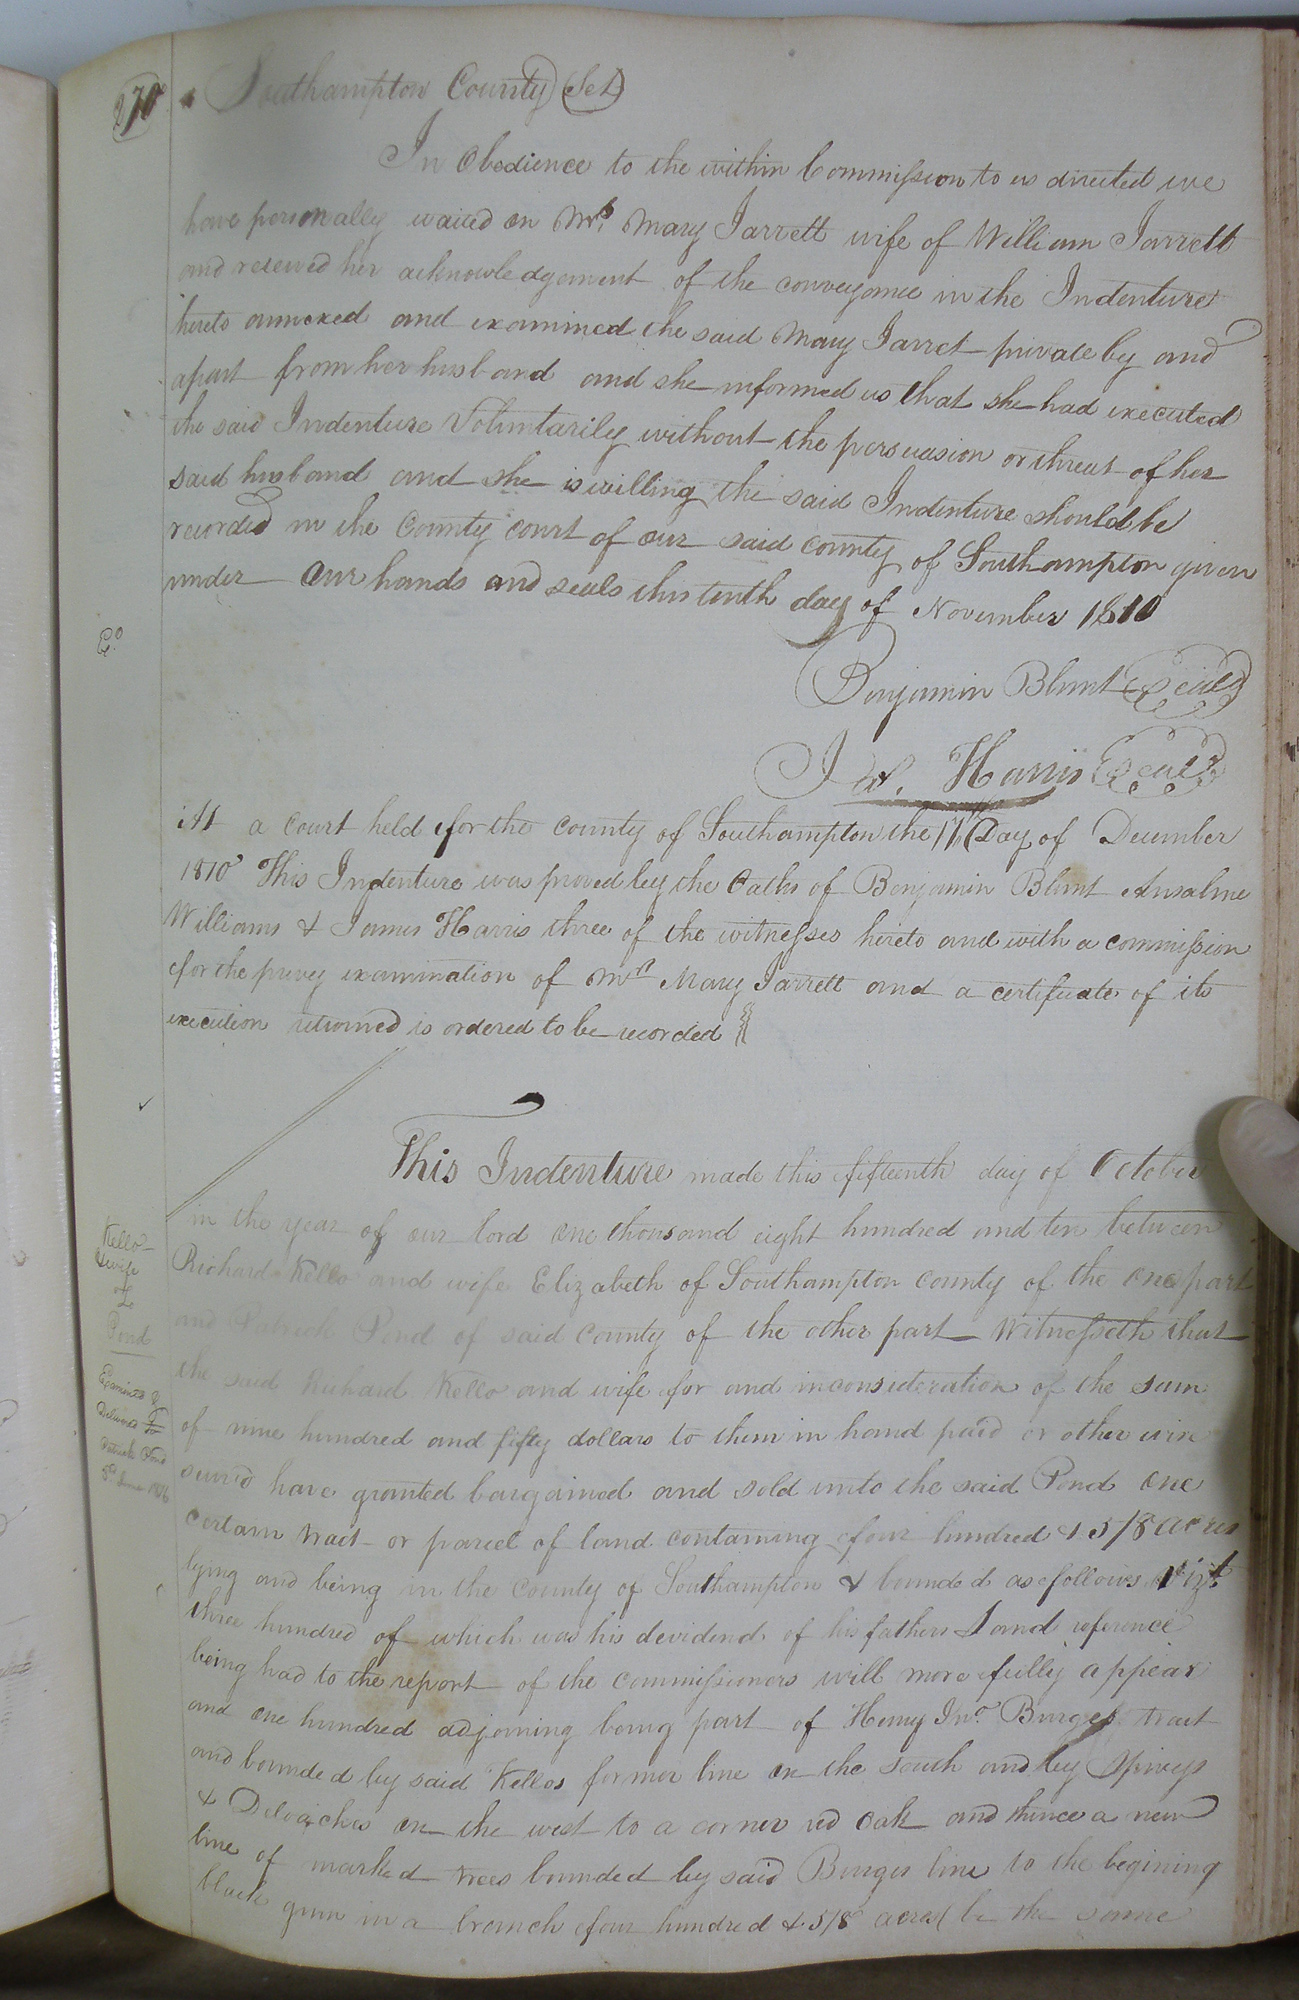 270
Southampton County (Sct)
In Obedience to the within Commission to us directed we
have personally waited on Mrs. Mary Jarrett wife of William Jarrett
and received her acknowledgement of the conveyance in the Indenture
hereto annexed and examined the said Mary Jarret privately and
apart from her husband and she informed us that she had executed
the said Indenture Voluntarily without the persuasion or threat of her
said husband and she is willing the said Indenture should be
recorded in the County court of our said county of Southampton given
under our hands and seals this tenth day of November 1810
Benjamin Blunt Seal
Harris Seal
At a court held for the county of Southampton the 17th Day of December
1810 This Indenture was proved by the Oaths of Benjamin Blunt Ansalme
Williams & James Harris three of the witnesses hereto and with a commission
for the privey examination of Mrs Mary Jarrett and a certificate of its
execution returned is ordered to be recorded
This Indenture made this fifteenth day of October
in the year of our lord one thousand eight hundred and ten between
Richard Kello and wife Elizabeth of Southampton county of the one part
and Patrick Pond of said county of the other part Witnesseth that
the said Richard Kello and wife for and in consideration of the sum
of nine hundred and fifty dollars to them in hand paid or other wise
secured have granted bargained and sold unto the said Pond one
certain tract or parcel of land containing four hundred & 5/8 acres
lying and being in the county of Southampton & bounded as follows Vizt
three hundred of which was his devidend of his fathers Land reference
being had to the report of the commissioners will more fully appear
and one hundred adjoining being part of Henry Jno. Burges tract
and bounded by said Kellos former line on the south and by Spiveys
& Deloaches on the west to a corner red oak and thence a new
line of marked trees bounded by said Burges line to the begining
black gum in a branch four hundred & 5/8 acres (be the same
Kello
& wife
to
Pond
Examined &
Delivered to
Patrick Pond